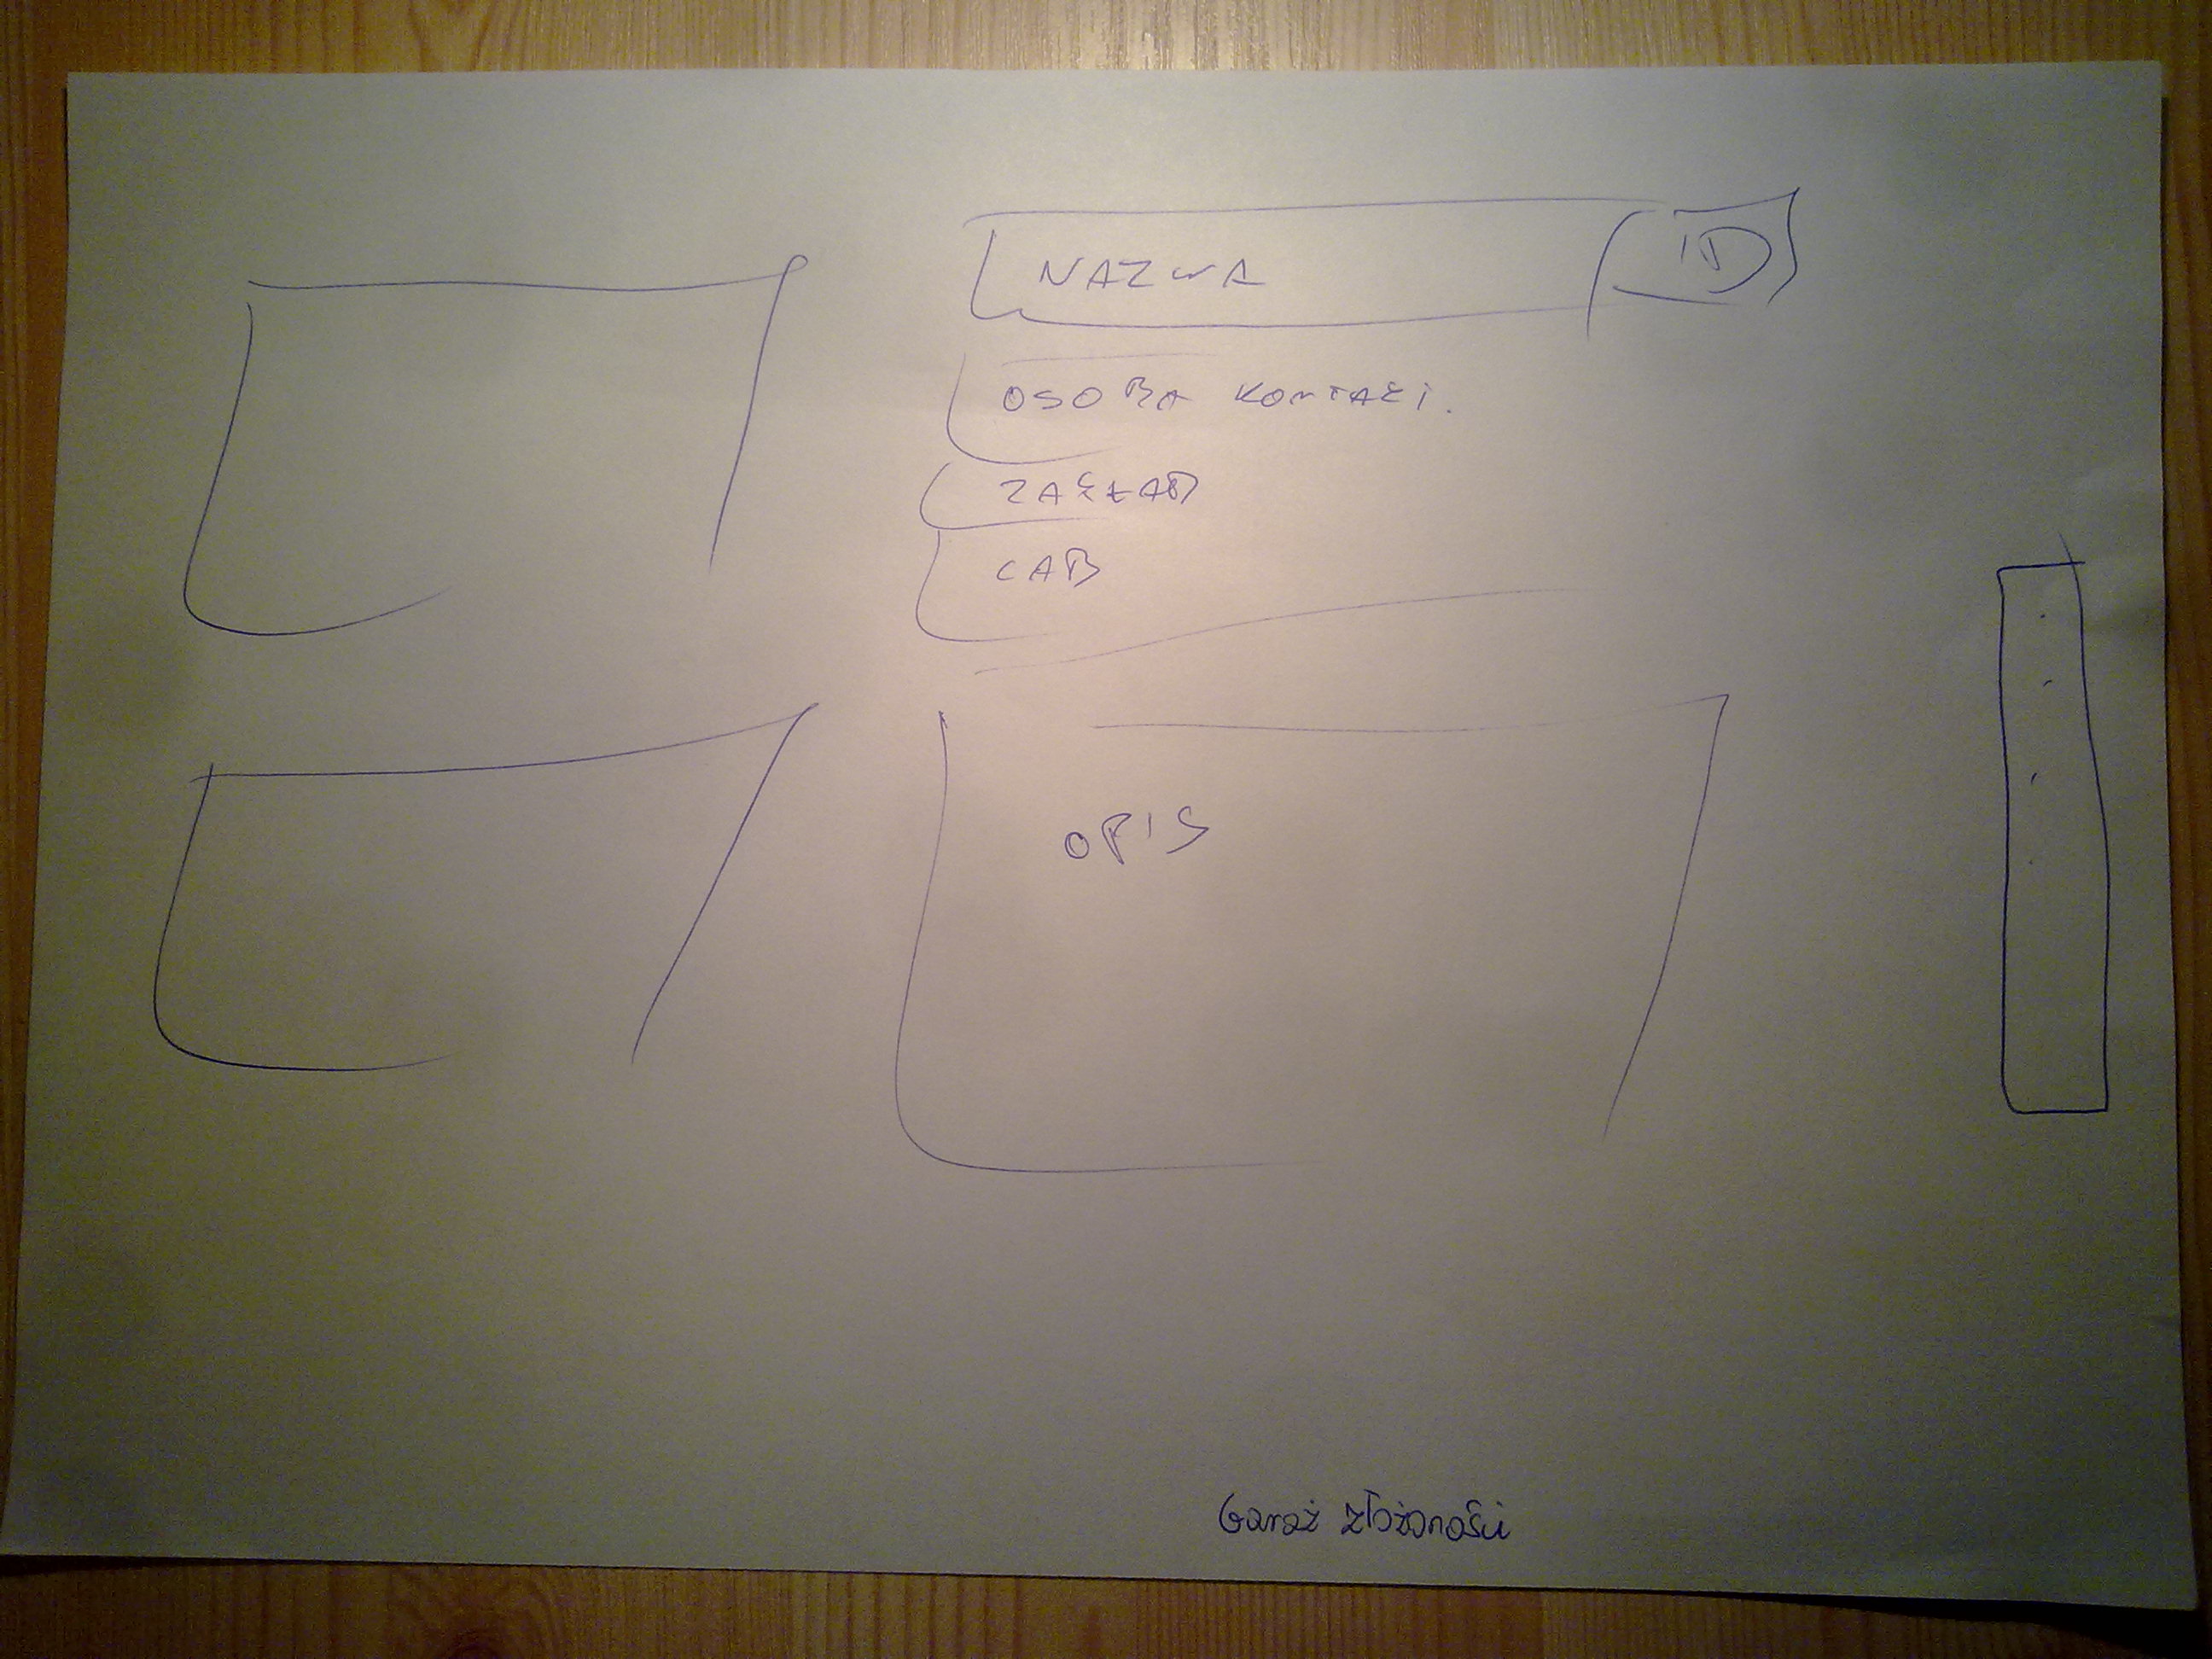 NAZWA ID
OSOBA KONTAKT.
ZAKŁAD
CAB
OPIS
Garaż złożoności